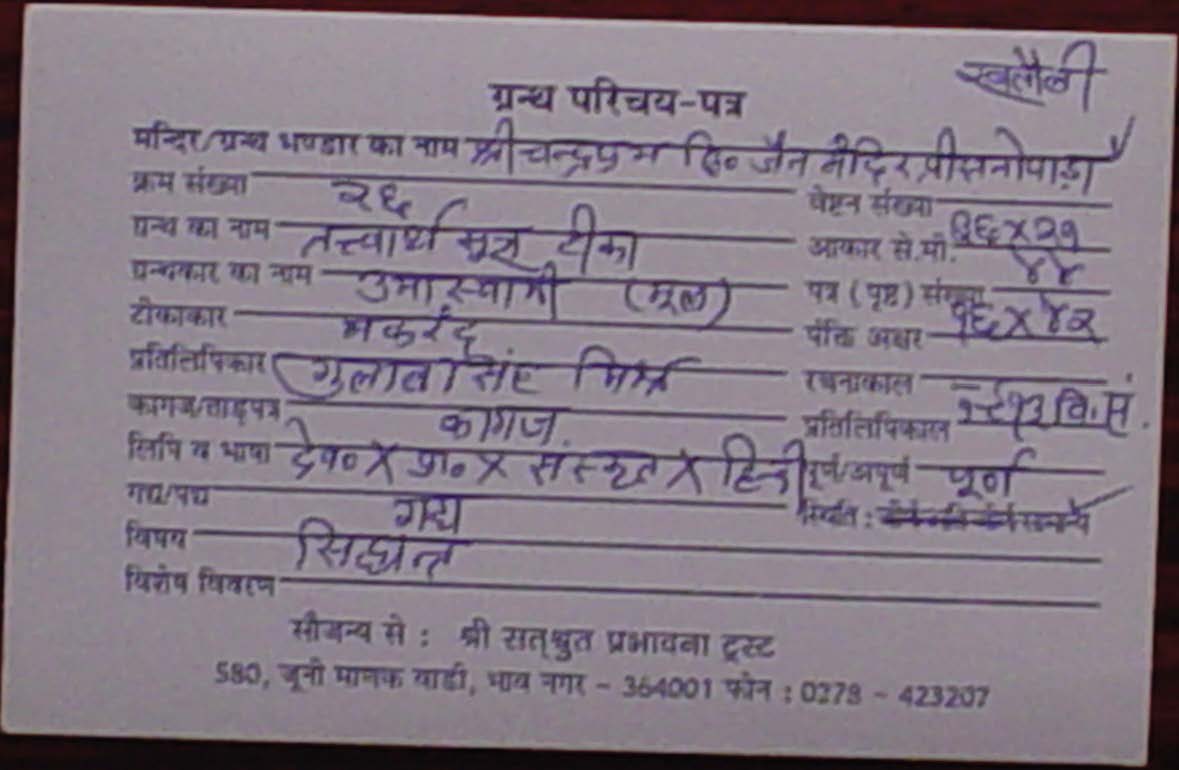 खतौली
ग्रन्थ परिचय-पत्र
मन्दिर/ग्रन्थ भण्डार का नाम श्री चन्द्रप्रभ दि० जैन मंदिर
क्रम संख्या २६ वेष्टन संख्या
ग्रन्थ का नाम तत्त्वार्थ सूत्र टीका आकार से.मी.
ग्रन्थकार का नाम उमास्वामी (मूल) पत्र (पृष्ठ) संख्या ४४
टीकाकार मकरंद पंक्ति अक्षर १६ X ४२
प्रतिलिपिकार सिंह मिश्र रचनाकाल
कागज/ताड़पत्र कागज. प्रतिलिपिकाल वि.सं.
लिपि व भाषा देव० X प्रा० X संस्कृत X हिन्दी पूर्ण/अपूर्ण पूर्ण
गद्य/पद्य गद्य स्थिति :
विषय सिद्धान्त
विशेष विवरण
सौजन्य से : श्री सत्श्रुत प्रभावना ट्रस्ट
580, जूनी माणक वाडी, भाव नगर - 364001 फोन : 0278 - 423207